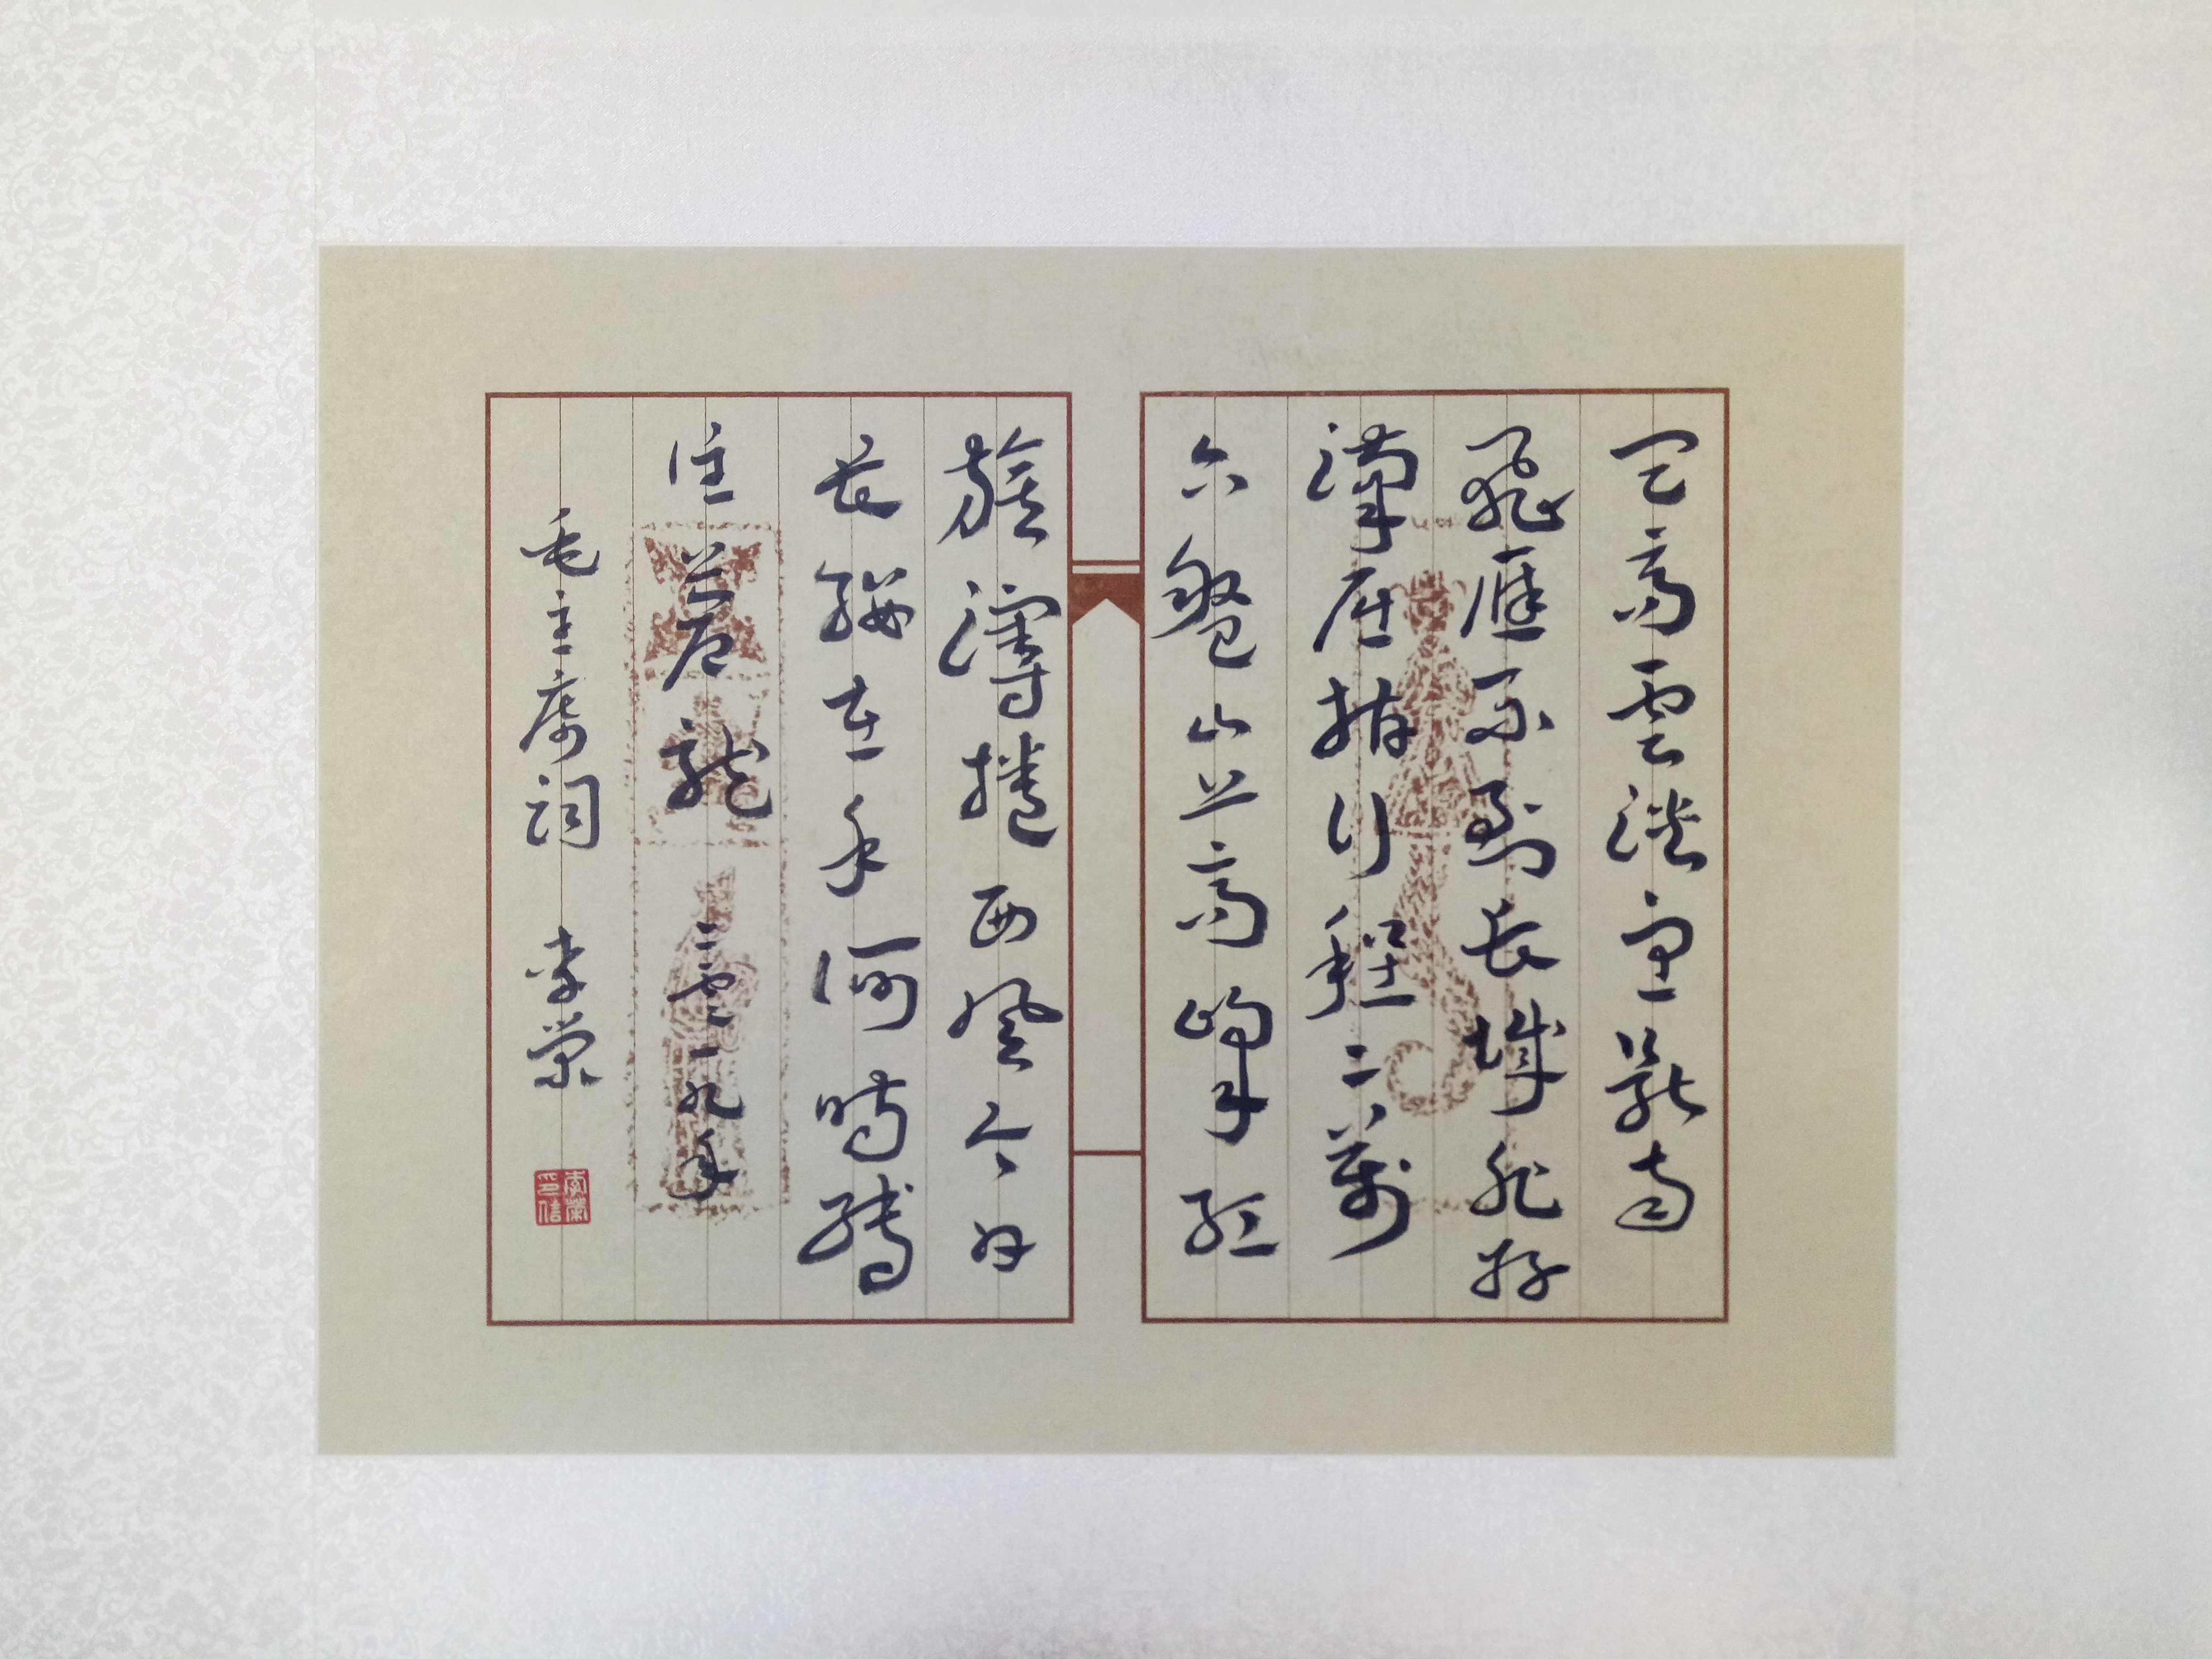 天高雲淡望斷南
飛雁不到長城非好
漢屈指行程二萬
六盤山上高峰紅
旗漫捲西風今日
長纓在手何時縛
住蒼龍 二零一九年
毛主席詞 李榮
李榮印信